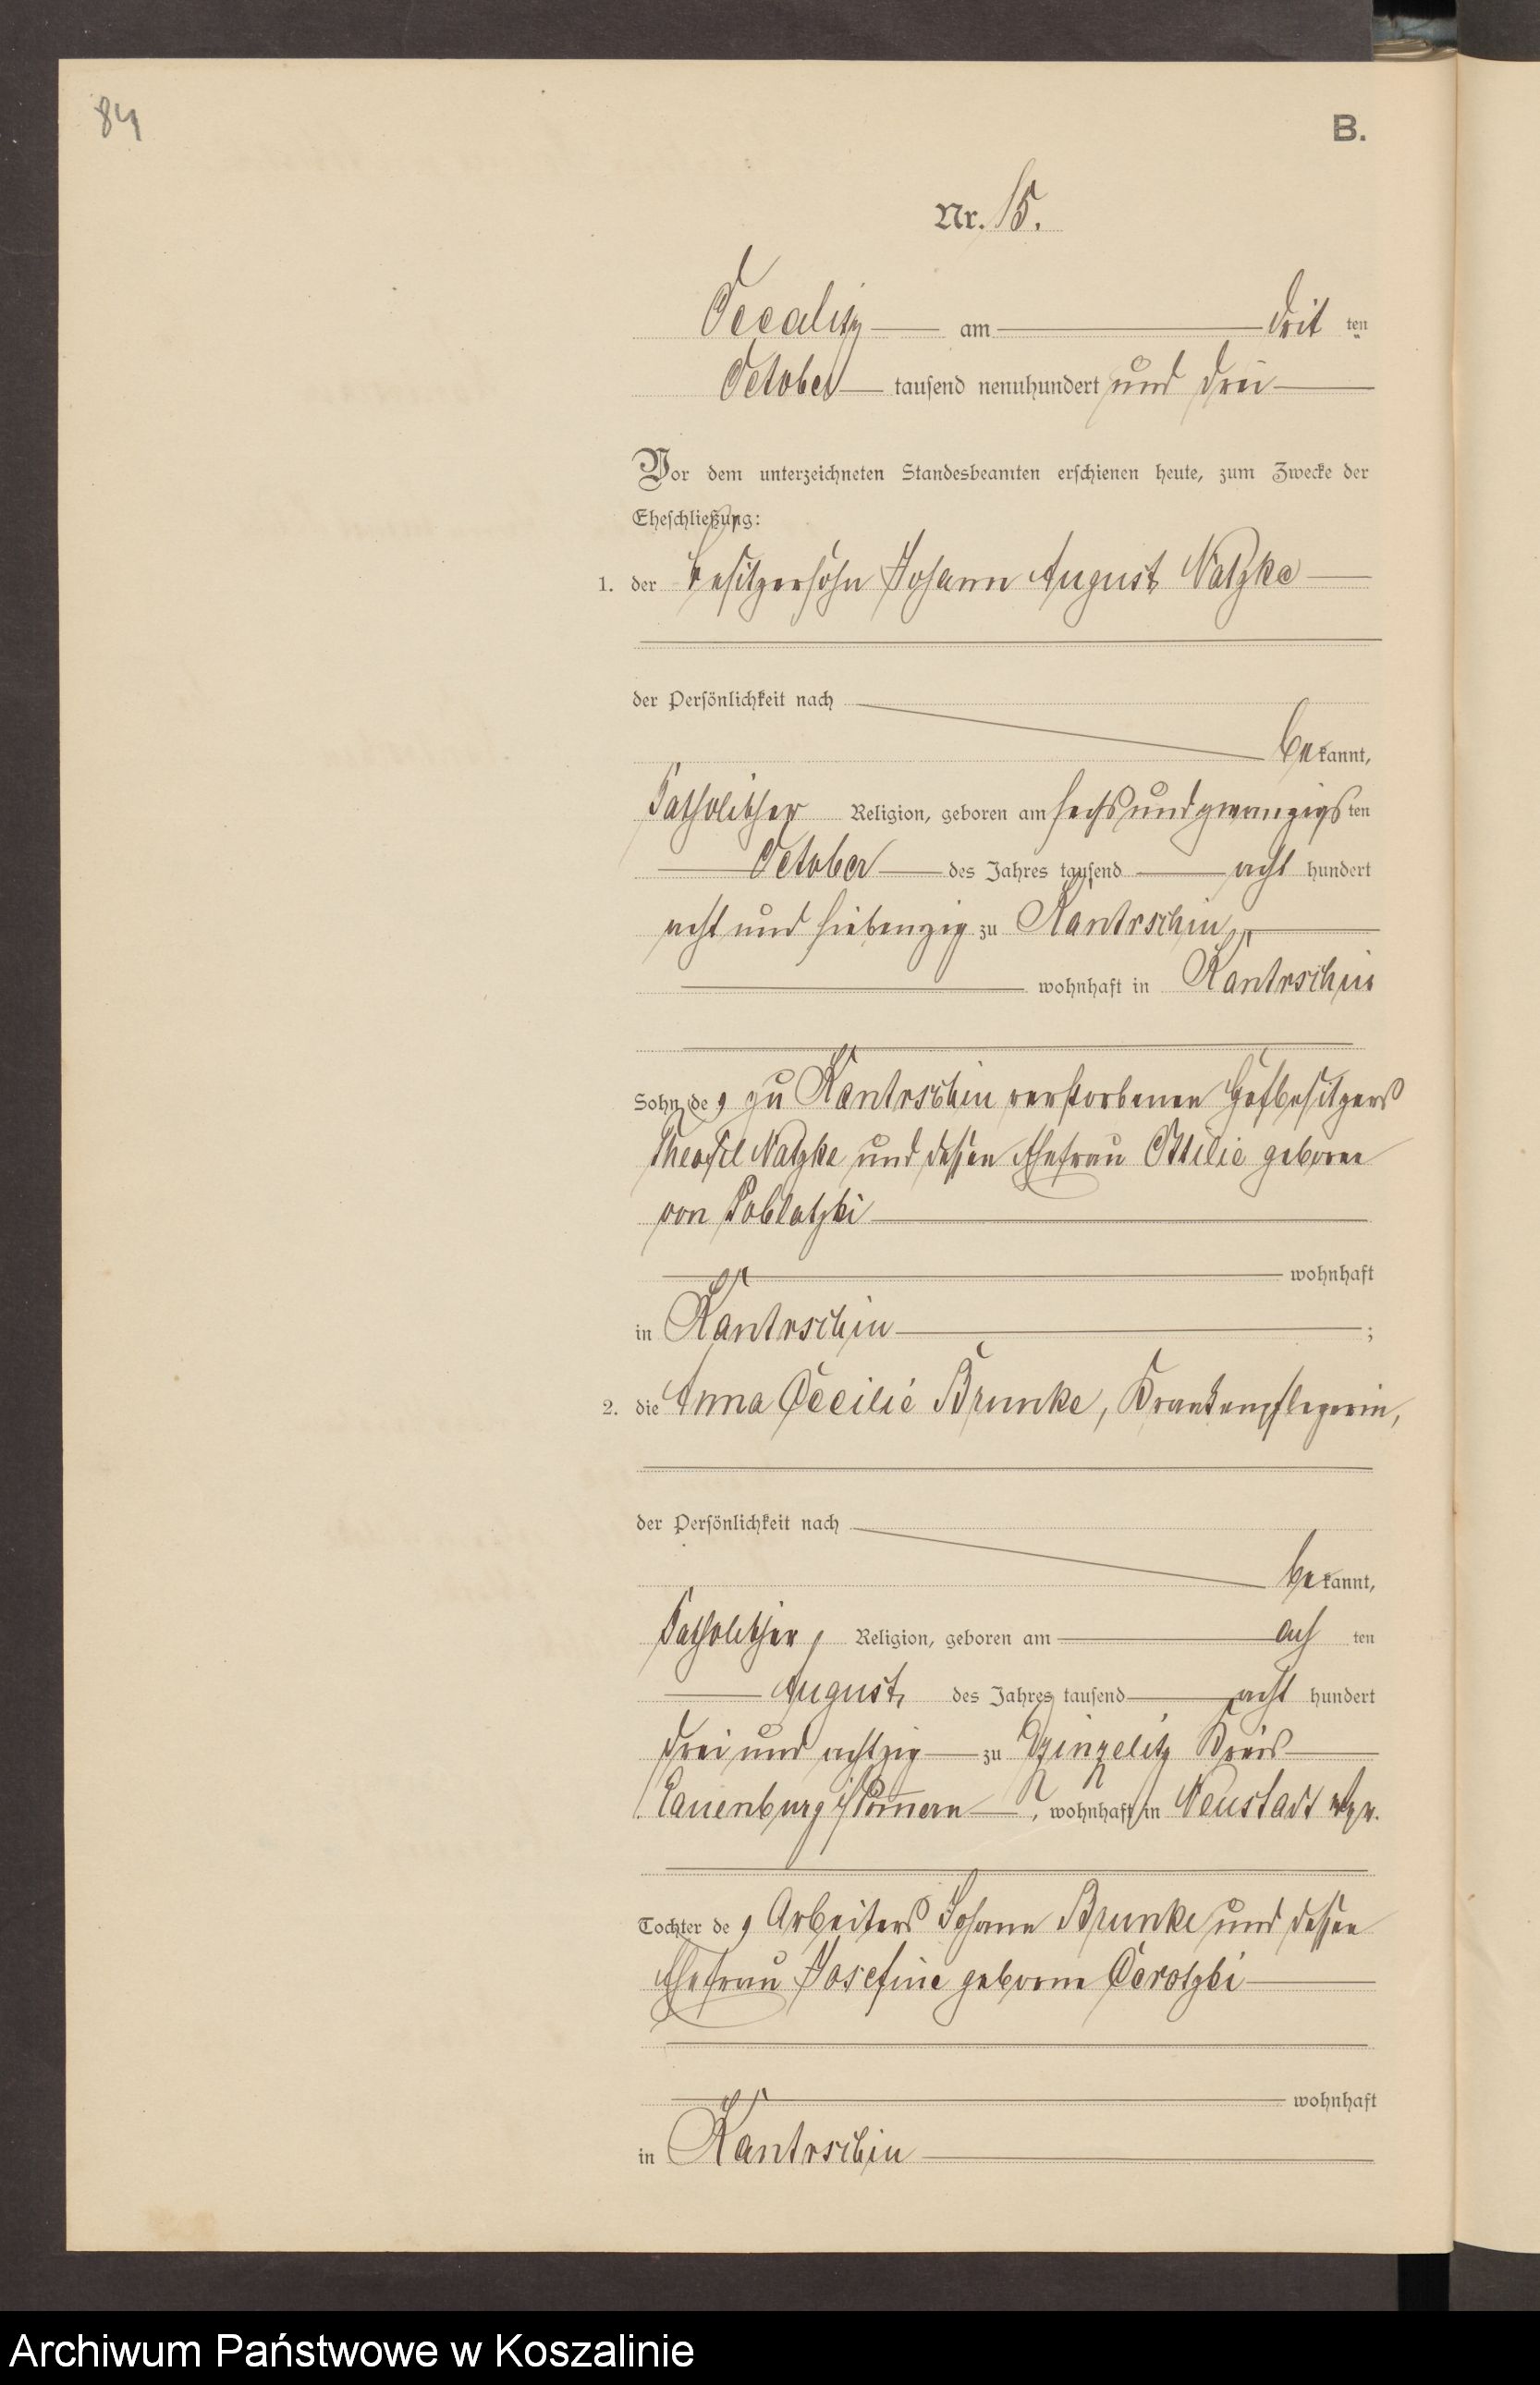 84
B.
Nr. 15.
Occalitz am drit ten
October tausend neunhundert und drei
Vor dem unterzeichneten Standesbeamten erschienen heute, zum Zwecke der
Eheschließung:
1. der Besitzersohn Johann August Natzke
der Persönlichkeit nach
be kannt,
katholischer Religion, geboren am sechsundzwanzigs ten
October des Jahres tausend acht hundert
acht und siebenzig zu Kantrschin,
wohnhaft in Kantrschin
Sohn des zu Kantrschin verstorbenen Hofbesitzers
Theofil Natzke und dessen Ehefrau Ottilie geborne
von Poblotzki
wohnhaft
in Kantrschin ;
2. die Anna Cecilie Brunke, Krankenpflegerin,
der Persönlichkeit nach
be kannt,
katholischer, Religion, geboren am ach ten
August des Jahres tausend acht hundert
drei und achtzig zu Dzinzelitz Kreis
Lauenburg i/Pommern , wohnhaft in Neustadt Wpr.
Tochter des Arbeiters Johann Brunke und dessen
Ehefrau Josefine geborne
wohnhaft
in Kantrschin
Archiwum Państwowe w Koszalinie